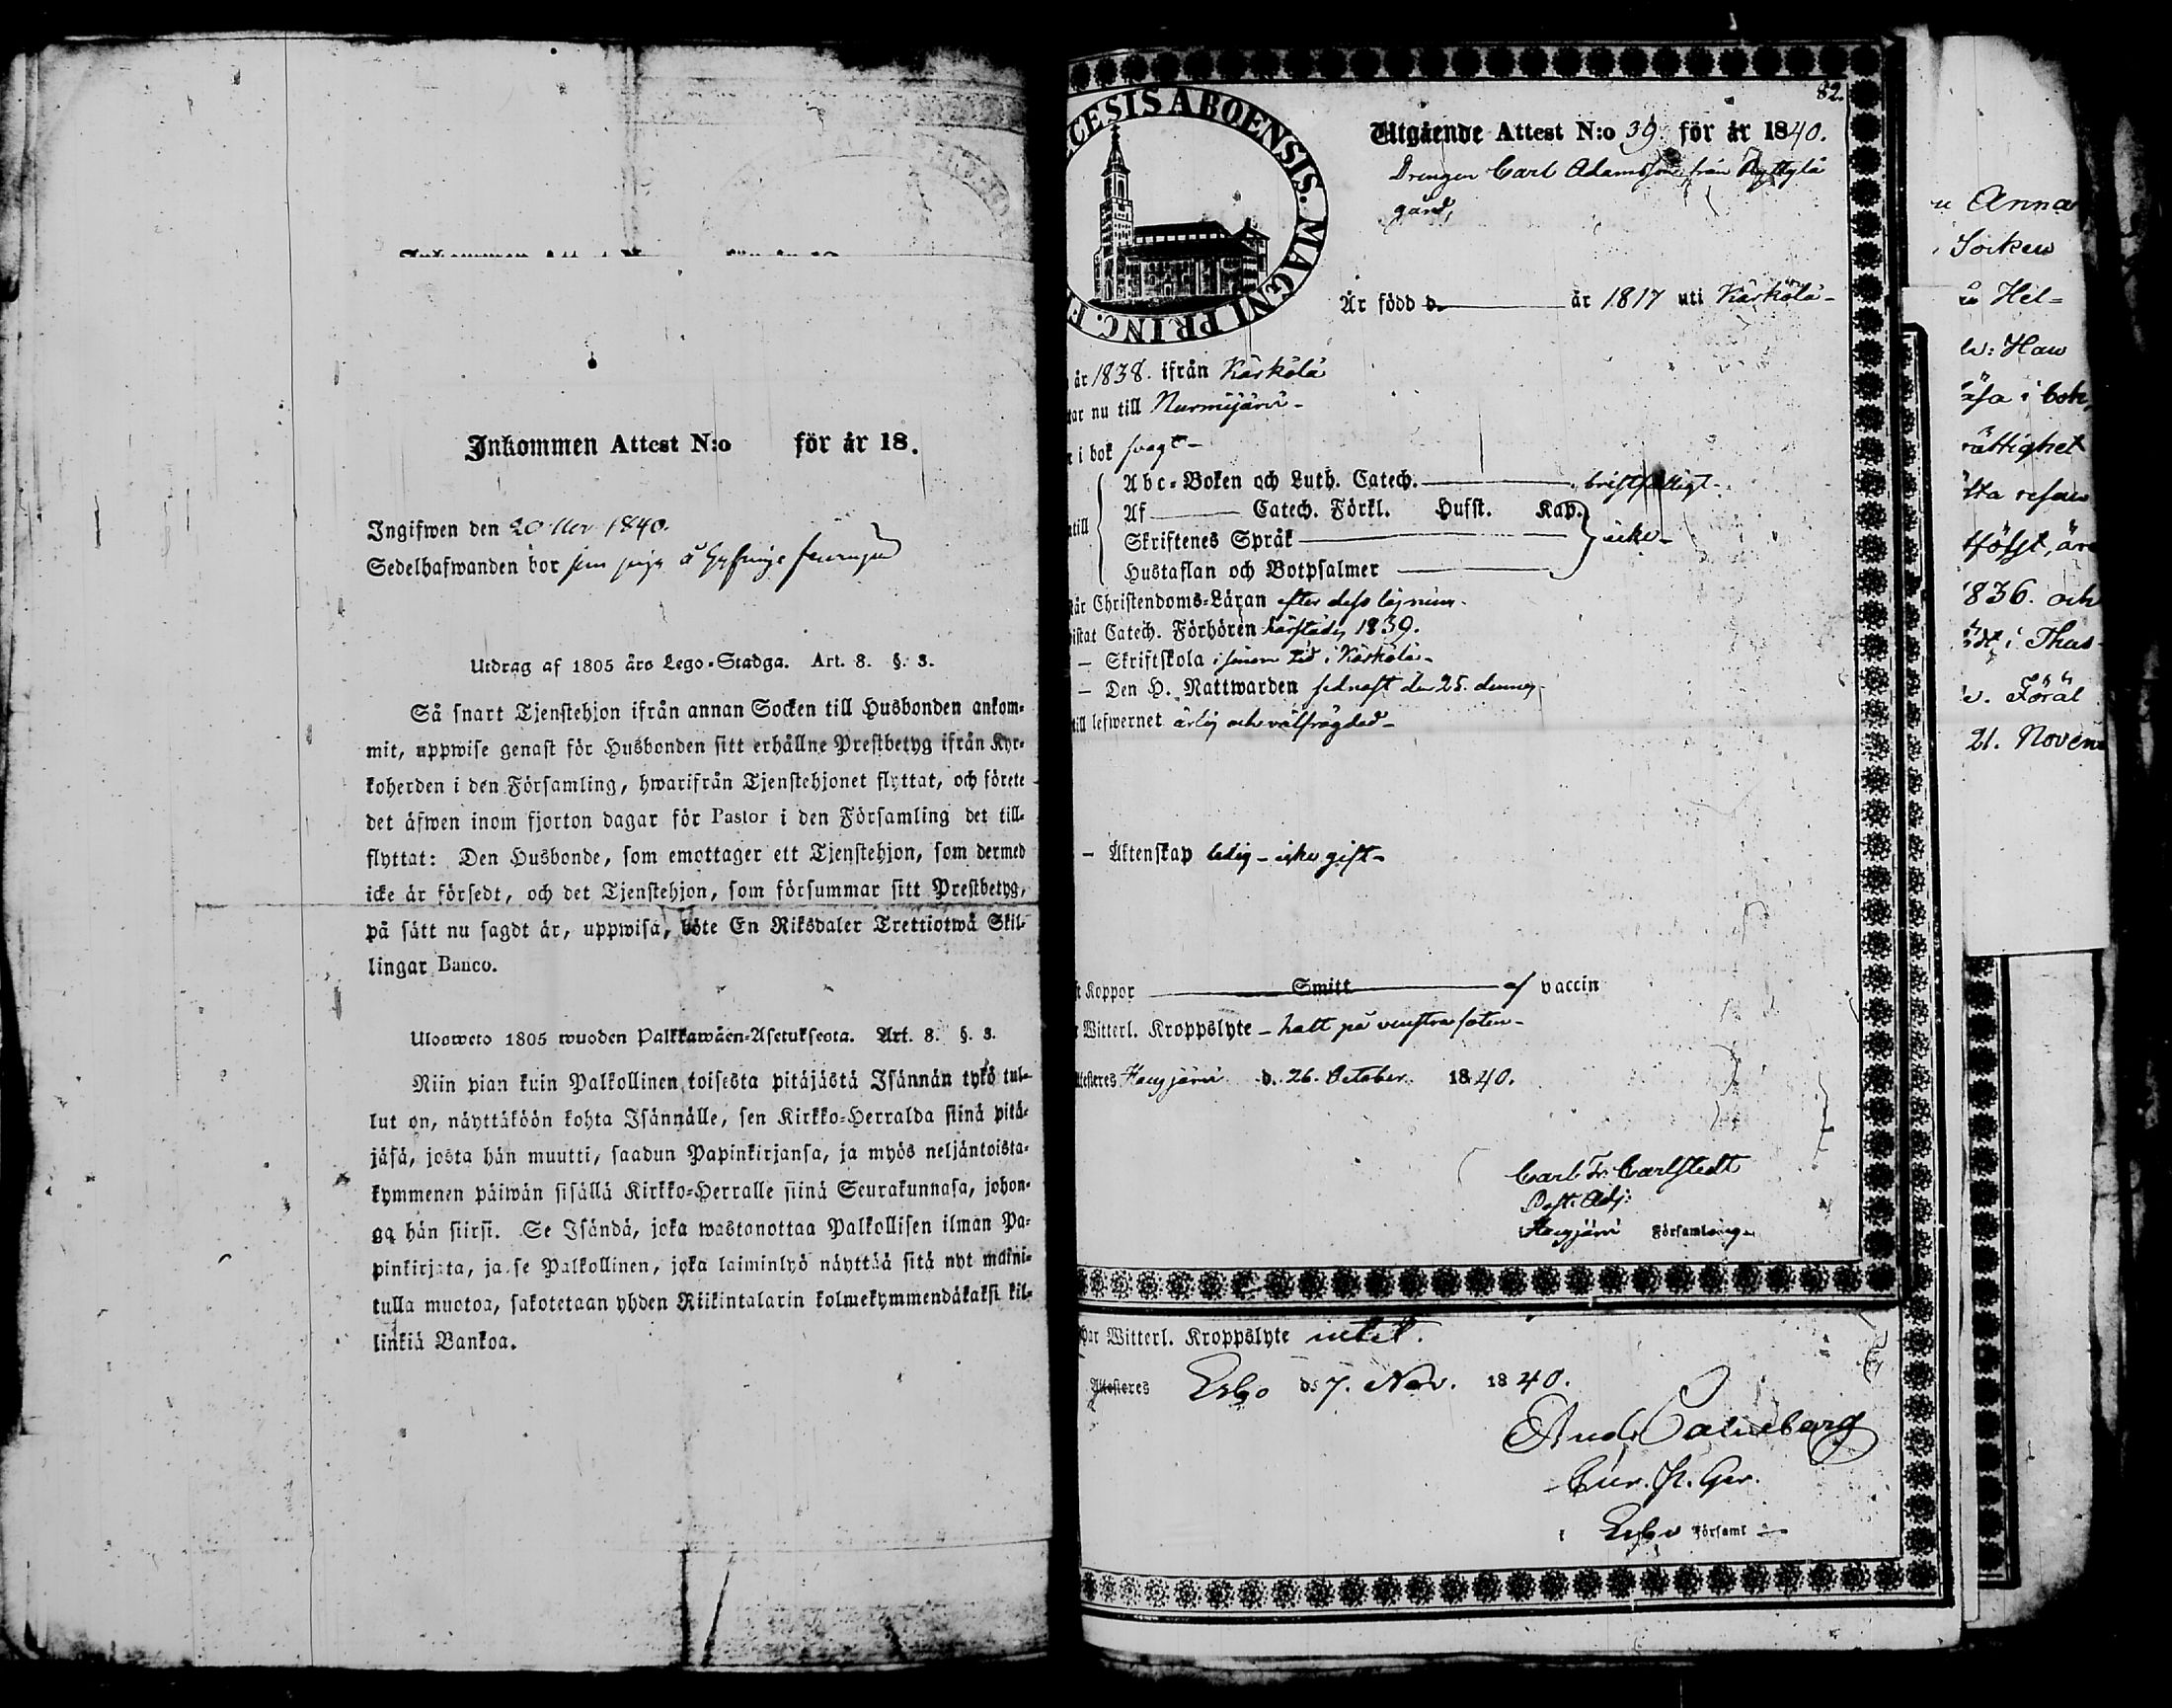 Inkommen Attest N:o för år 18.
Ingifwen den 20 1840.
Sedelhafwanden bor
Utdrag af 1805 års Lego-Stadga. Art. 8. §. 3.
Så snart Tjenstehjon ifrån annan Socken till Husbonden ankom-
mit, uppwise genast för Husbonden sitt erhållne Prestbetyg ifrån Kyr-
koherden i den Församling, hwarifrån Tjenstehjonet flyttat, och förete
det äfwen inom fjorton dagar för Pastor i den Församling det till-
flyttat: Den Husbonde, som emottager ett Tjenstehjon, som dermed
icke är försedt, och det Tjenstehjon, som försummar sitt Prestbetyg,
på sätt nu sagdt är, uppwisa, böte En Riksdaler Trettiotwå Skil-
lingar Banco.
Ulosweto 1805 wuoden Palkkawäen-Asetuksesta. Art. 8. §. 3.
Niin pian kuin Palkollinen toisesta pitäjästä Isännän tykö tul-
lut on, näyttäköön kohta Isännälle, sen Kirkko-Herralda siinä pitä-
jäsä, josta hän muutti, saadun Papinkirjansa, ja myös neljäntoista-
kymmenen päiwän sisällä Kirkko-Herralle siinä Seurakunnasa, johon-
ga hän siirsi. Se Isändä, joka wastanottaa Palkollisen ilman Pa-
pinkirjata, ja se Palkollinen, joka laiminlyö näyttää sitä nyt maini-
tulla muotoa, sakotetaan yhden Riikintalarin kolmekymmendäkaksi kil-
linkiä Bankoa.
82.
CESIS ABOENSIS. MAGNI PRINC. F
Utgående Attest N:o 39. för år 1840.
Drengen Carl Adamsson från Ryttylä
gård,
Är född d. år 1817 uti Kärkölä
år 1838. ifrån Kärkölä
tar nu till Nurmijärvi
i bok svagt
Abc-Boken och Luth. Catech. bristfälligt
Af Catech. Förkl. Husst. Kap.
Skriftenes Språk icke
Hustaflan och Botpsalmer
Christendoms-Läran efter dess läsning
istat Catech. Förhören härstädes 1839.
– Skriftskola i sinom tid i Kärkölä
– Den H. Nattwarden sednast den 25. dennes
till lefwernet ärlig och välfrägdad
– Äktenskap ledig – icke gift
Koppor Smitt af vaccin
Witterl. Kroppslyte – halt på venstra foten
Attesteres Hausjärvi d. 26. October 1840.
Carl Fr. Carlstedt
Past. Adj:
Hausjärvi Församling
har Witterl. Kroppslyte intet.
Attesteres Esbo d. 7. Nov. 1840.
i Esbo Församl
Anna
Socken
Hel=
Han
i bok,
rättighet
resan
1836. och
i Thus
Föräl
21. Novem